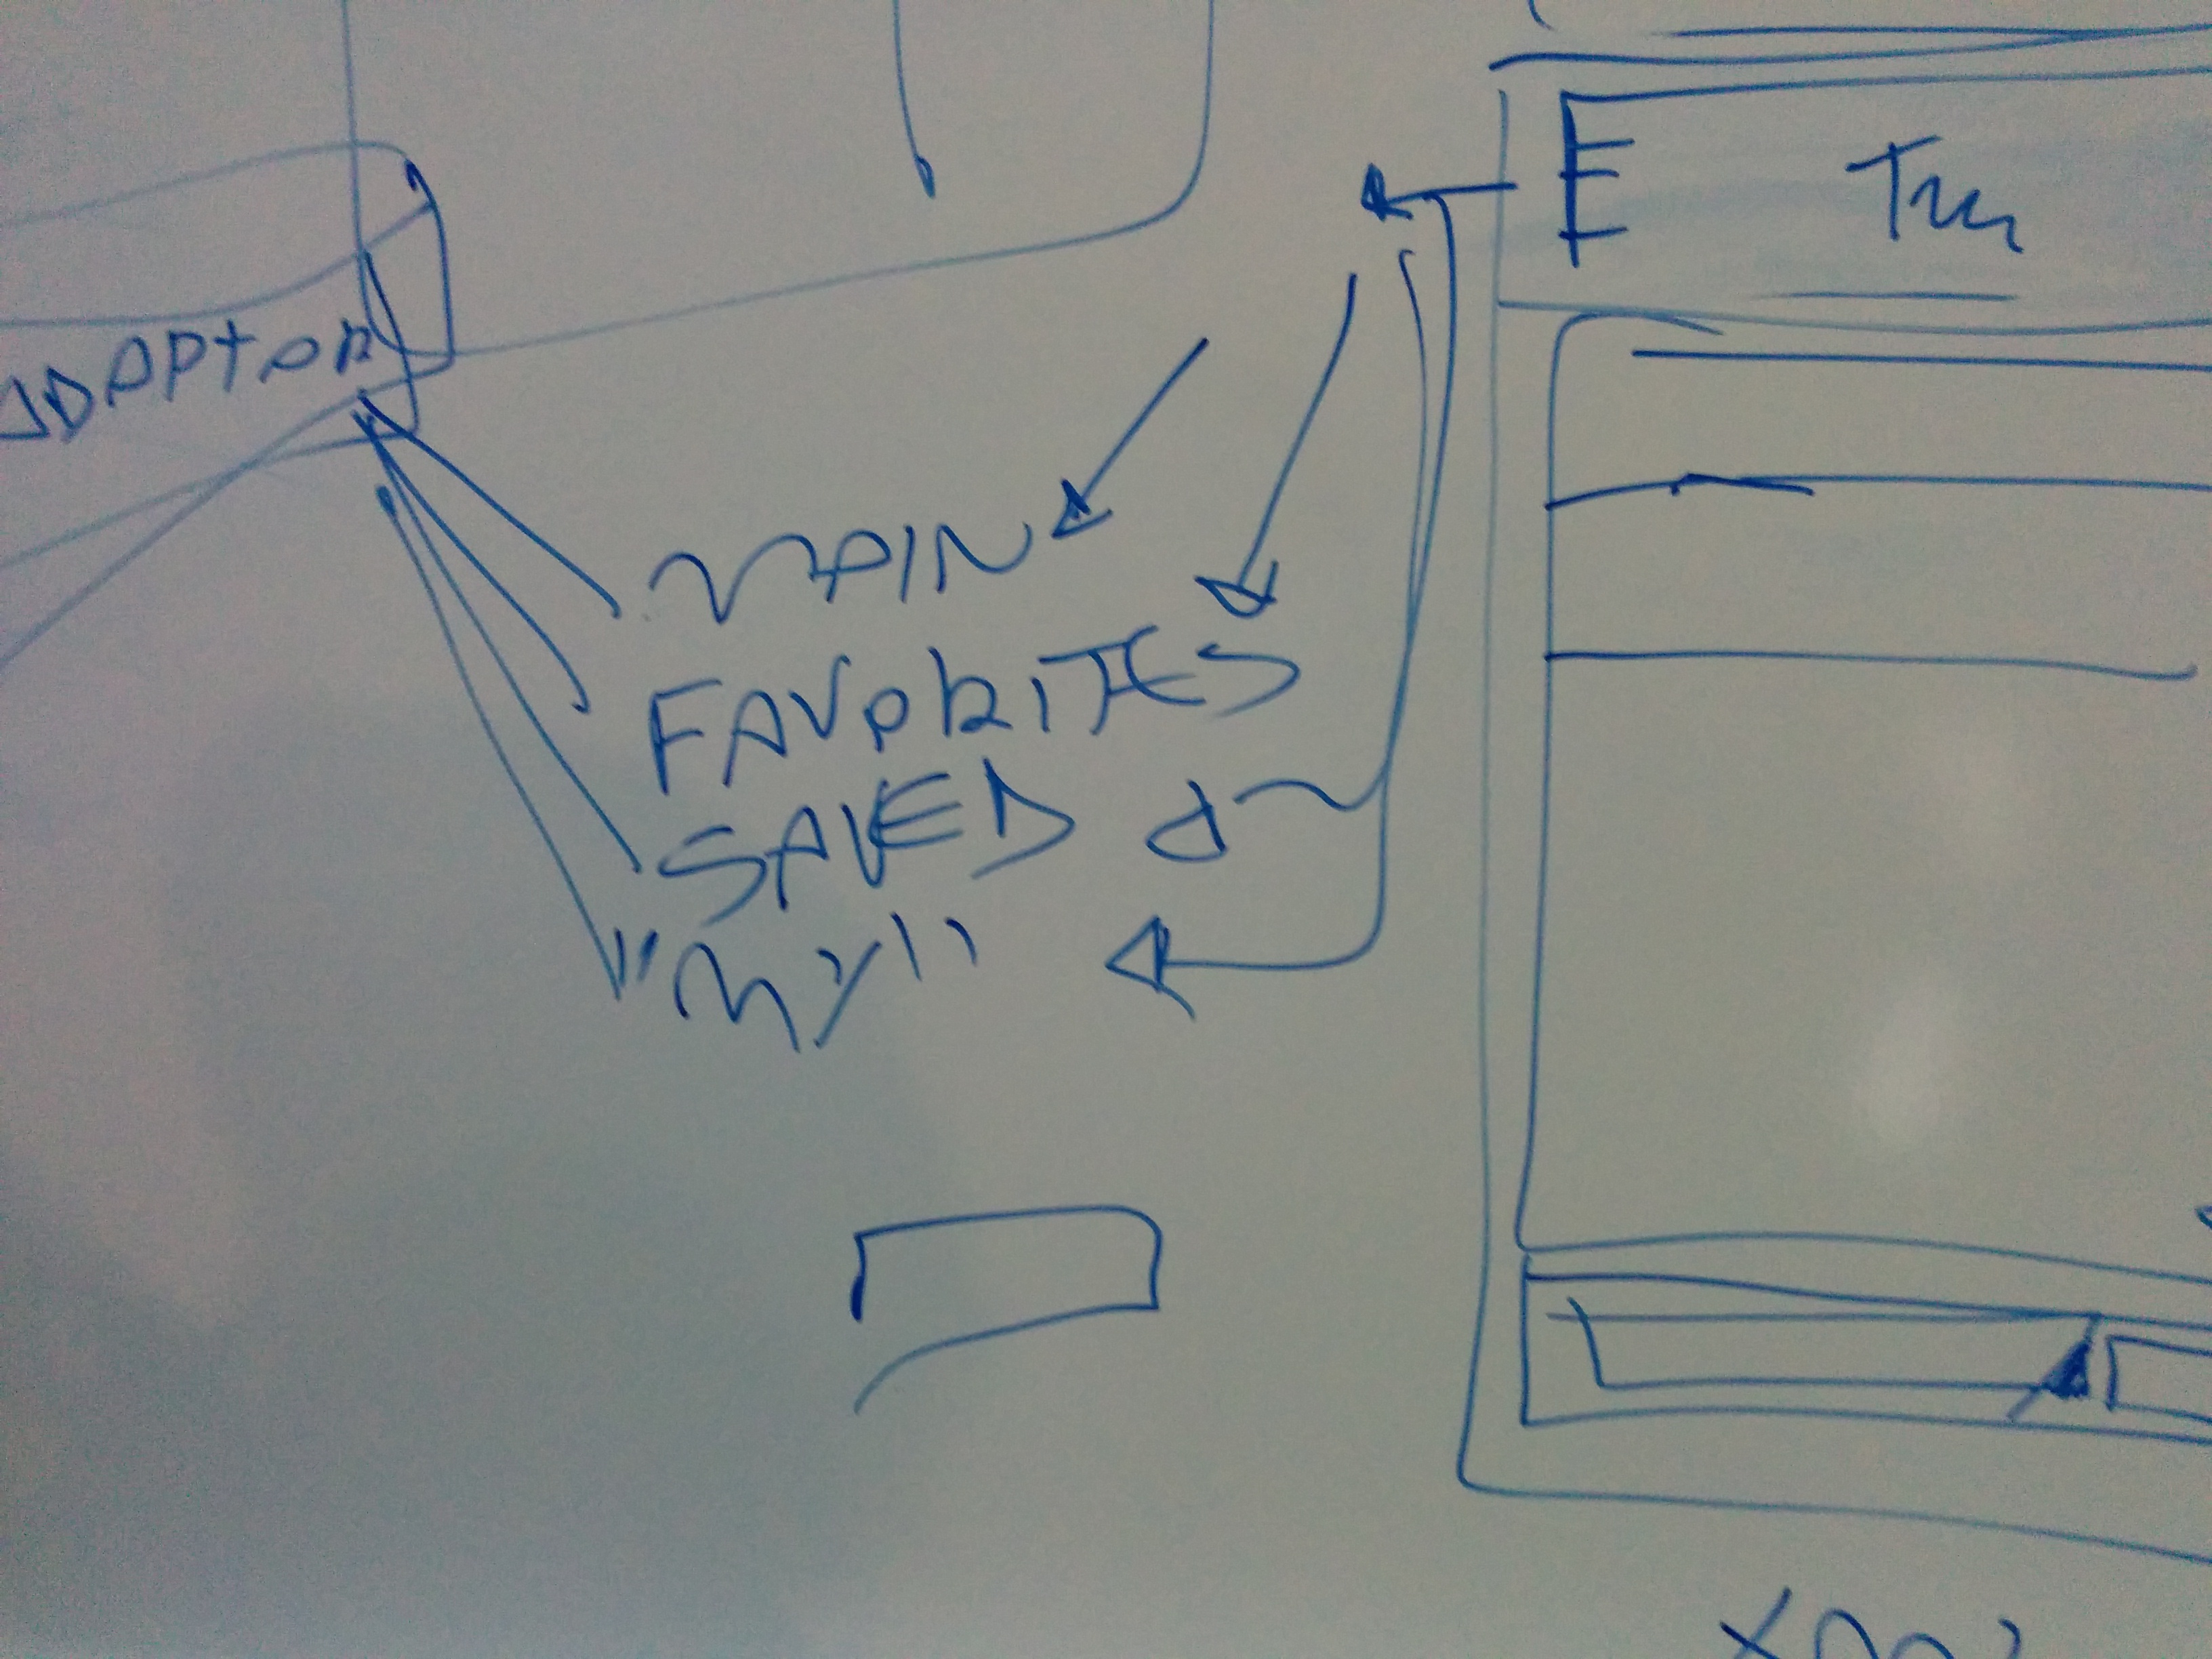 ADAPTOR
MAIN
FAVORITES
SAVED
"MY"